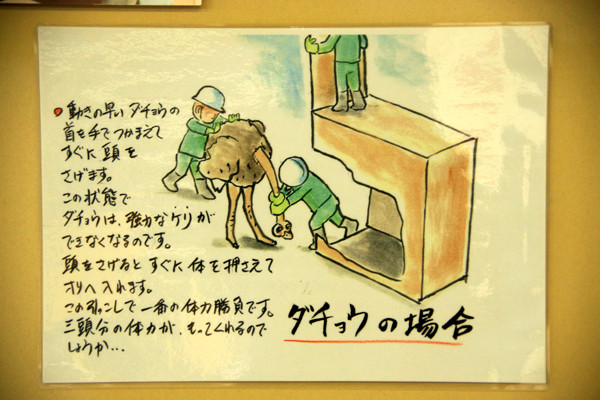 動きの早いダチョウの
首を手でつかまえて
すぐに頭を
さげます。
この状態で
ダチョウは、強力なケリが
できなくなるのです。
頭をさげるとすぐに体を押さえて
オリへ入れます。
この引っこしで一番の体力勝負です。
三頭分の体力が、もってくれるので
しょうか…
ダチョウの場合